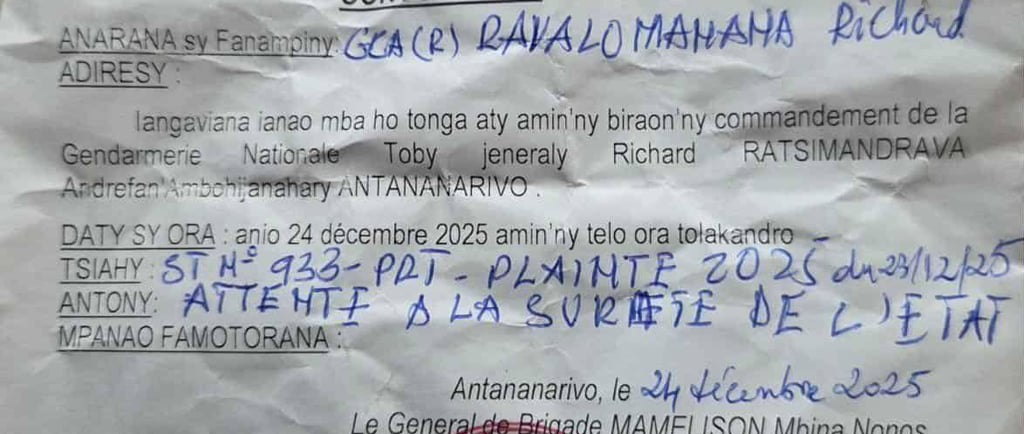 ANARANA sy Fanampiny: GCA(R) RAVALOMANANA Richard
ADIRESY :
Iangaviana ianao mba ho tonga aty amin'ny biraon'ny commandement de la
Gendarmerie Nationale Toby jeneraly Richard RATSIMANDRAVA
Andrefan'Ambohijanahary ANTANANARIVO .
DATY SY ORA : anio 24 décembre 2025 amin'ny telo ora tolakandro
TSIAHY : ST N° 933-PRT-PLAINTE 2025 du 23/12/25
ANTONY: ATTENTE A LA SURETE DE L'ETAT
MPANAO FAMOTORANA :
Antananarivo, le 24 décembre 2025
Le General de Brigade MAMELISON Mbina Nonos